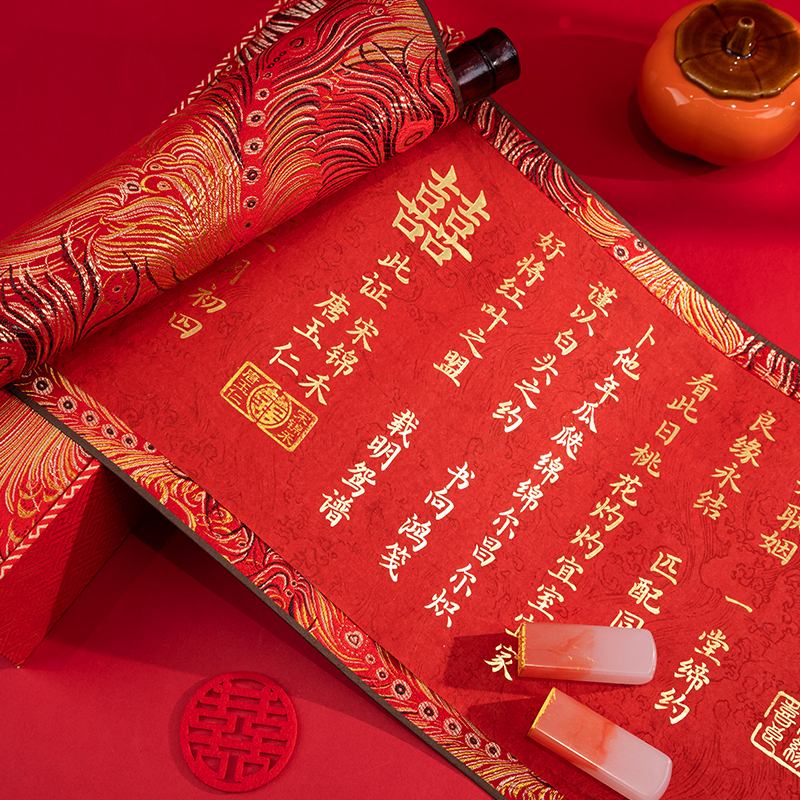 联姻 一堂缔约
良缘永结 匹配同
看此日桃花灼灼宜室宜家
卜他年瓜瓞绵绵尔昌尔炽
谨以白头之约 书向鸿笺
好将红叶之盟 载明鸳谱
囍
此证
宋锦禾
唐玉仁
宋锦禾
囍
唐玉仁
月初四
囍